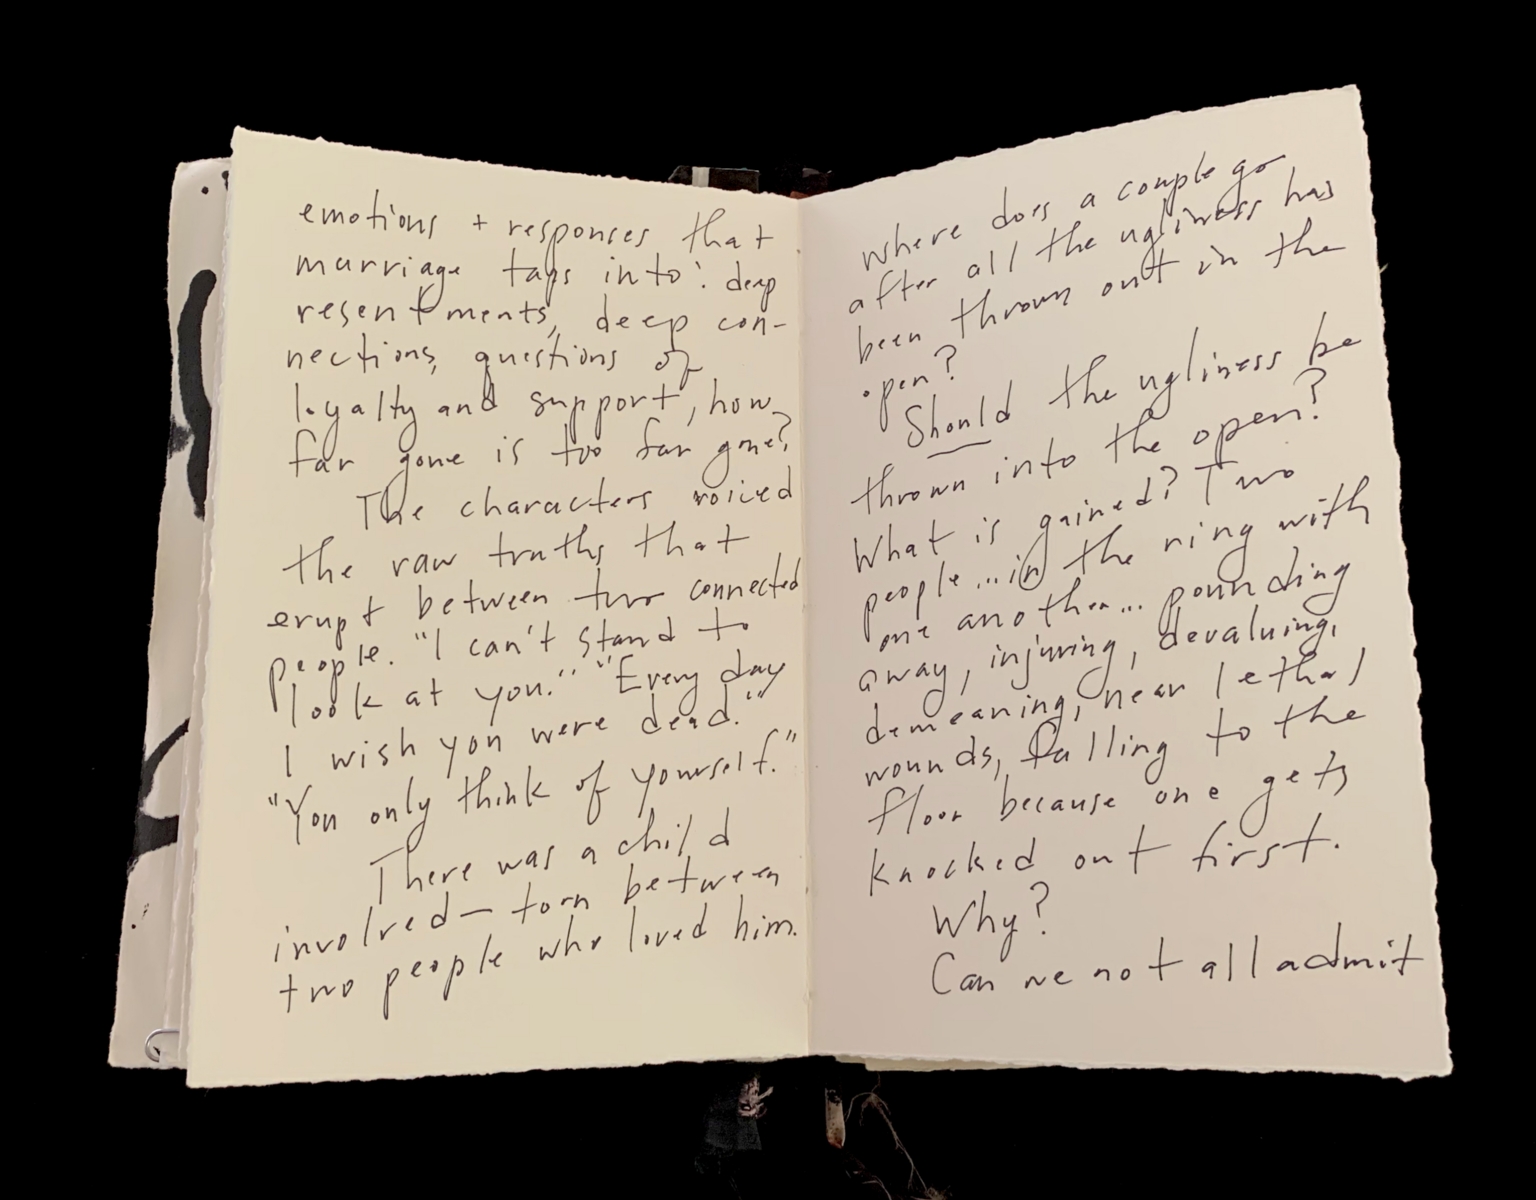 emotions + responses that
marriage taps into: deep
resentments, deep con-
nections, questions of
loyalty and support, how
far gone is too far gone?
The characters voiced
the raw truths that
erupt between two connected
people. "I can't stand to
look at you." "Every day
I wish you were dead."
"You only think of yourself."
There was a child
involved — torn between
two people who loved him.
where does a couple go
after all the ugliness has
been thrown out in the
open?
Should the ugliness be
thrown into the open?
What is gained? Two
people... in the ring with
one another... pounding
away, injuring, devaluing,
demeaning, near lethal
wounds, falling to the
floor because one gets
knocked out first.
Why?
Can we not all admit